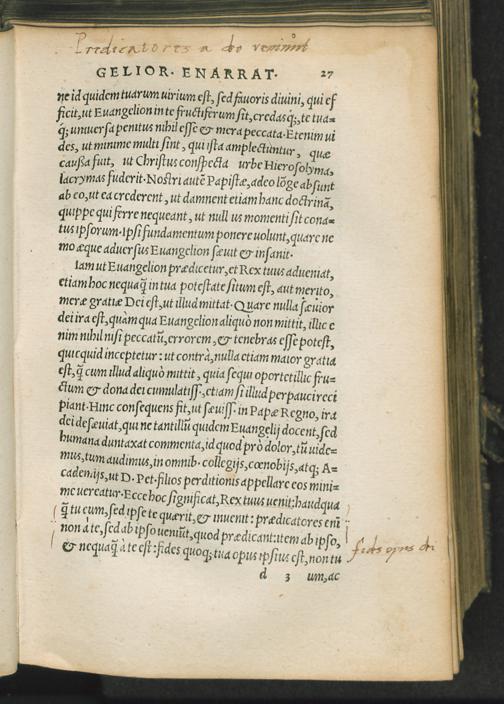 Predicatores a deo veniunt
GELIOR. ENARRAT. 27
ne id quidem tuarum virium est, sed favoris divini, qui ef
ficit, ut Evangelion in te fructiferum sit, credasq;, te tua=
q́; universa penitus nihil esse & mera peccata. Etenim vi
des, ut minime multi sint, qui ista amplectuntur, quæ
caussa fuit, ut Christus conspecta urbe Hierosolyma,
lacrymas fuderit. Nostri autē Papistæ, adeo lōge absunt
ab eo, ut ea crederent, ut damnent etiam hanc doctrinā,
quippe qui ferre nequeant, ut nullius momenti sit cona=
tus ipsorum. Ipsi fundamentum ponere volunt, quare ne
mo æque adversus Evangelion sævit & insanit.
Iam ut Evangelion prædicetur, et Rex tuus adveniat,
etiam hoc nequaq̃ in tua potestate situm est, aut merito,
meræ gratiæ Dei est, ut illud mittat. Quare nulla sævior
dei ira est, quàm qua Evangelion aliquò non mittit, illic e
nim nihil nisi peccatū, errorem, & tenebras esse potest,
quicquid inceptetur: ut contrà, nulla etiam maior gratia
est, q̃ cum illud aliquò mittit, quia sequi oportet illic fru=
ctum & dona dei cumulatiss., etiam si illud perpauci reci
piant. Hinc consequens fit, ut sæviss. in Papæ Regno, ira
dei desæviat, qui ne tantillū quidem Euangelij docent, sed
humana duntaxat commenta, id quod prò dolor, tū vide=
mus, tum audimus, in omnib. collegijs, cœnobijs, atq; A=
cademijs, ut D. Pet. filios perditionis appellare eos mini=
me vereatur. Ecce hoc significat, Rex tuus venit: haudqua
q̃ tu eum, sed ipse te quærit, & invenit: prædicatores enī
non à te, sed ab ipso veniūt, quod prædicant: item ab ipso,
& nequaq̃ à te est: fides quoq; tua opus ipsius est, non tu
fides opus dei
d 3 um, ac